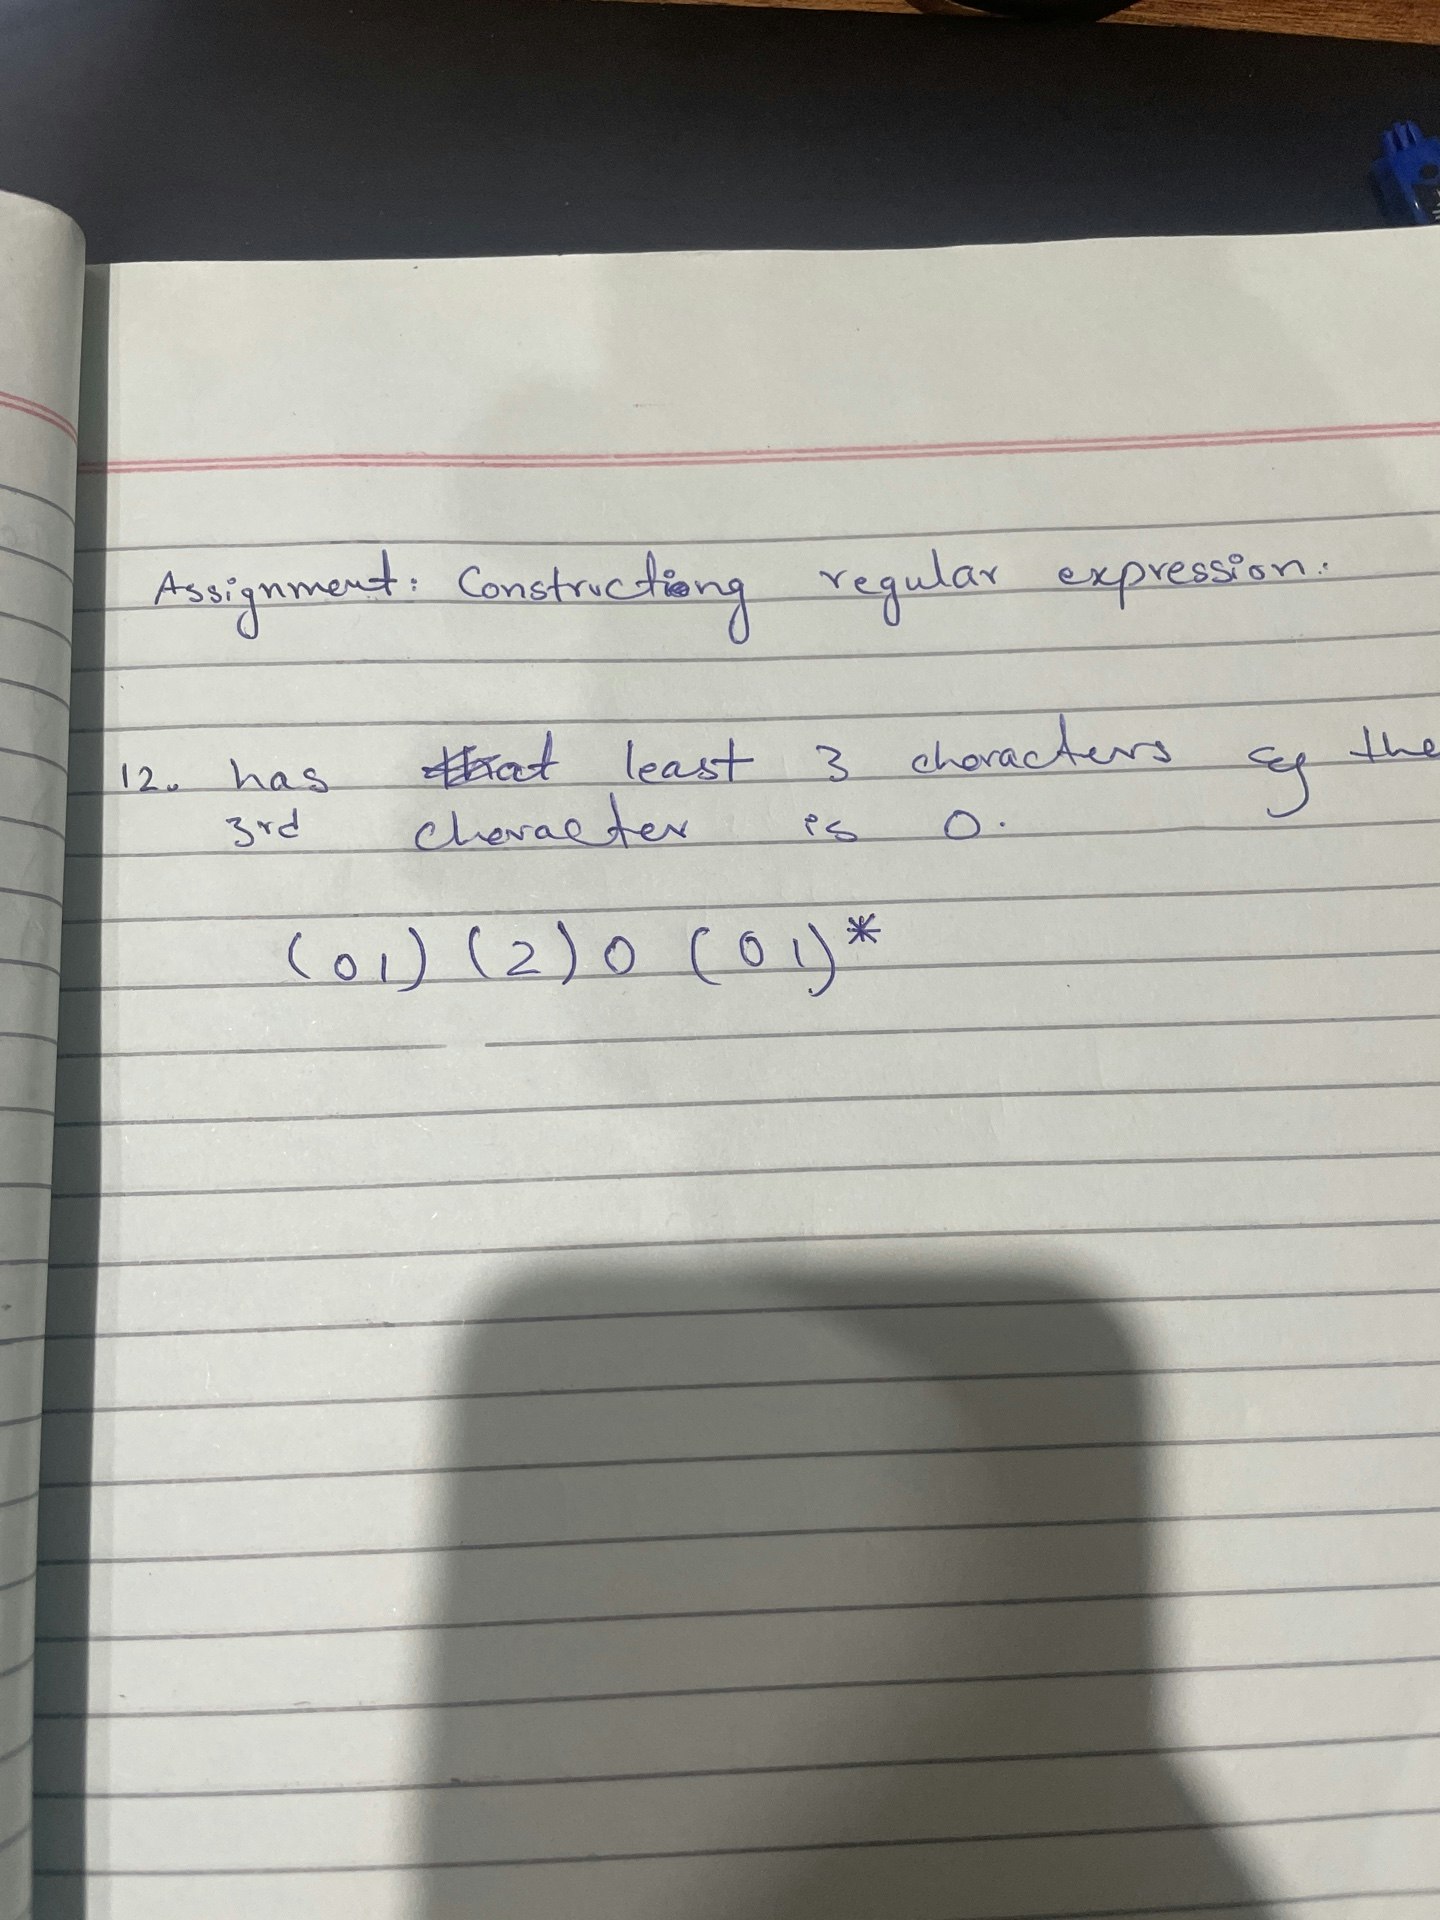 Assignment: Constructiong regular expression.
12. has at least 3 characters & the
3rd character is 0.
(01) (2) 0 (01)*